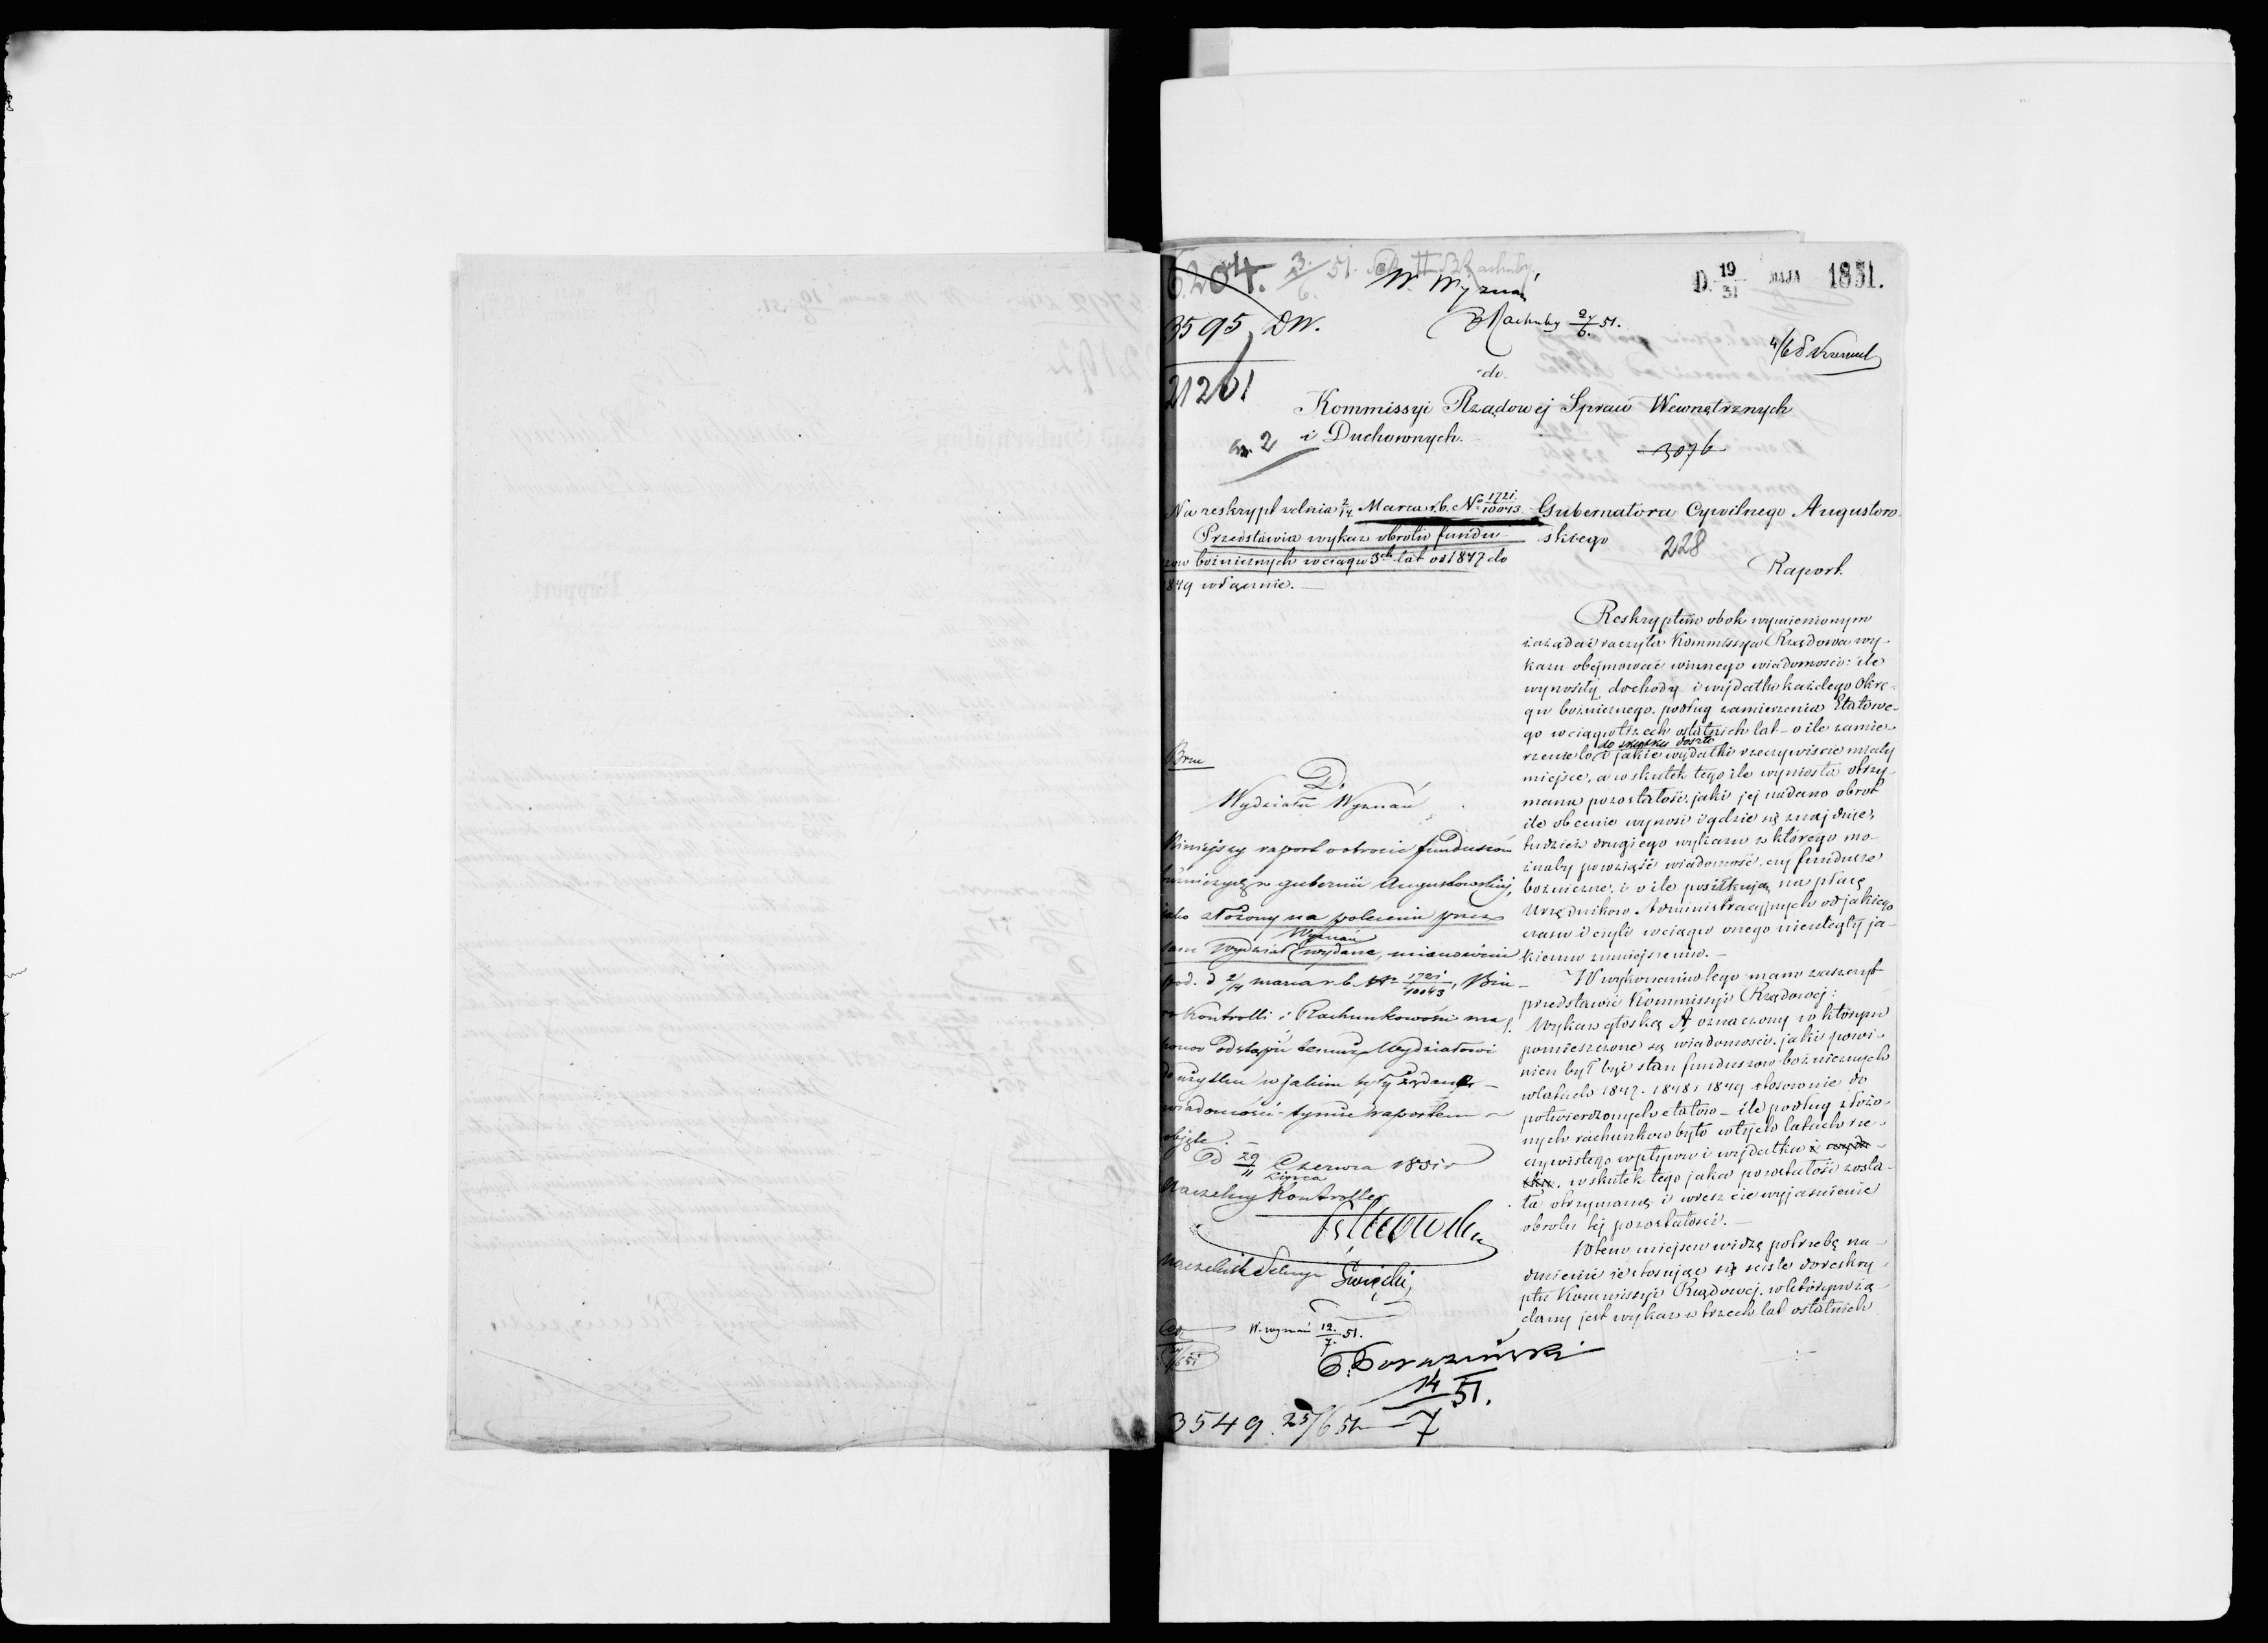 6204. 3/6 51. Sek II
W. Wyznań
D. 19/31 MAJA 1851.
3595 DW.
B Rachuby 2/6 51.
4/6
21201
do
Kommissyi Rządowej Spraw Wewnętrznych
i Duchownych.
3076
Na reskrypt z dnia 2/14 Marca r.b. No 1721/10043
Przedstawia wykaz obrotu fundu
szow bożniczych w ciągu 3ch lat od 1847 do
1849 włącznie.
Gubernatora Cywilnego Augustow
skiego
228
Raport.
Reskryptem obok wymienionym
zażądać raczyła Kommissya Rządowa wy-
kazu obejmować winnego wiadomości: ile
wynosiły dochody i wydatki każdego Okrę-
gu bożniczego, podług zamierzenia Etatowe-
go w ciągu trzech ostatnich lat – o ile zamie-
rzenie to do skutku doszło i jakie wydatki rzeczywiście miały
miejsce, a w skutek tego ile wyniosła otrzy-
mana pozostałość, jaki jej nadano obrot
ile obecnie wynosi i gdzie się znajduje,
tudzież drugiego wykazu z którego mo-
żnaby powziąść wiadomość, czy fundusze
bożnicze, i o ile posiłkują na płacę
Urzędnikow Administracyjnych od jakiego
czasu i czyli w ciągu onego nieuległy ja-
kiemu zmniejszeniu.
W wykonaniu tego mam zaszczyt
przedstawić Kommissyi Rządowej:
Wykaz głoską A oznaczony w którym
pomieszczone są wiadomości, jaki powi-
nien był być stan funduszow bożniczych
w latach 1847. 1848 i 1849 stosownie do
potwierdzonych etatow – ile podług złożo-
nych rachunkow było w tych latach rze-
czywistego wpływu i wydatku i
w skutek tego jaka pozostałość zosta-
ła otrzymaną i wreszcie wyjaśnienie
obrotu tej pozostałości.
W tem miejscu widzę potrzebę na-
dmienić że stosując się ściśle do reskry-
ptu Kommissyi Rządowej, w którym żą-
dany jest wykaz w trzech lat ostatnich
D.
Wydziału Wyznań
Niniejszy raport o obrocie funduszów
bożniczych w gubernii Augustowskiej,
jako złożony na polecenie przez
tenże Wydział Wyznań wydane, mianowicie
pod. d 2/14 marca r.b. Nr 1721/10043, Biu-
ro Kontrolli i Rachunkowości ma
honor odstąpić temuż Wydziałowi
do użytku w jakim były żądane
wiadomości tymże raportem
objęte.
D 29/11 Czerwca/Lipca 1851 r
Naczelny Kontroller
Naczelnik Sekcyi Święcki
W. wyznań 12/7 51.
14/7 51.
3549. 25/6 51